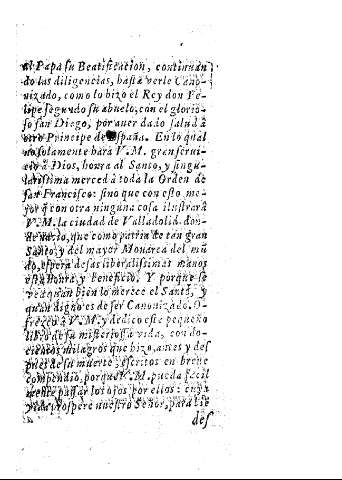 al Papa su Beatificacion, continuan
do las diligencias, hasta verle Cano-
nizado, como lo hizo el Rey don Fe-
lipe segundo su abuelo, con el glorio-
so san Diego, por auer dado salud à
otro Principe de España. En lo qual
no solamente harà V.M. gran serui-
cio à Dios, honra al Santo, y singu-
larissima merced à toda la Orden de
san Francisco: sino que con esto me-
jor q̃ con otra ninguna cosa ilustrarà
V.M. la ciudad de Valladolid don-
de naciò, que como patria de tan gran
Santo, y del mayor Monarca del mũ
do, espera de sus liberalissimas manos
esta honra y beneficio. Y porque se
vea quan bien lo merece el Santo, y
quan digno es de ser Canonizado. O-
frezco à V.M. y dedico este pequeño
libro de su misteriosa vida, con do-
cientos milagros que hizo, antes y des
pues de su muerte, escritos en breue
compendio, porque V.M. pueda facil
mente passar los ojos por ellos: cuya
vida prospere nuestro Señor, para
des